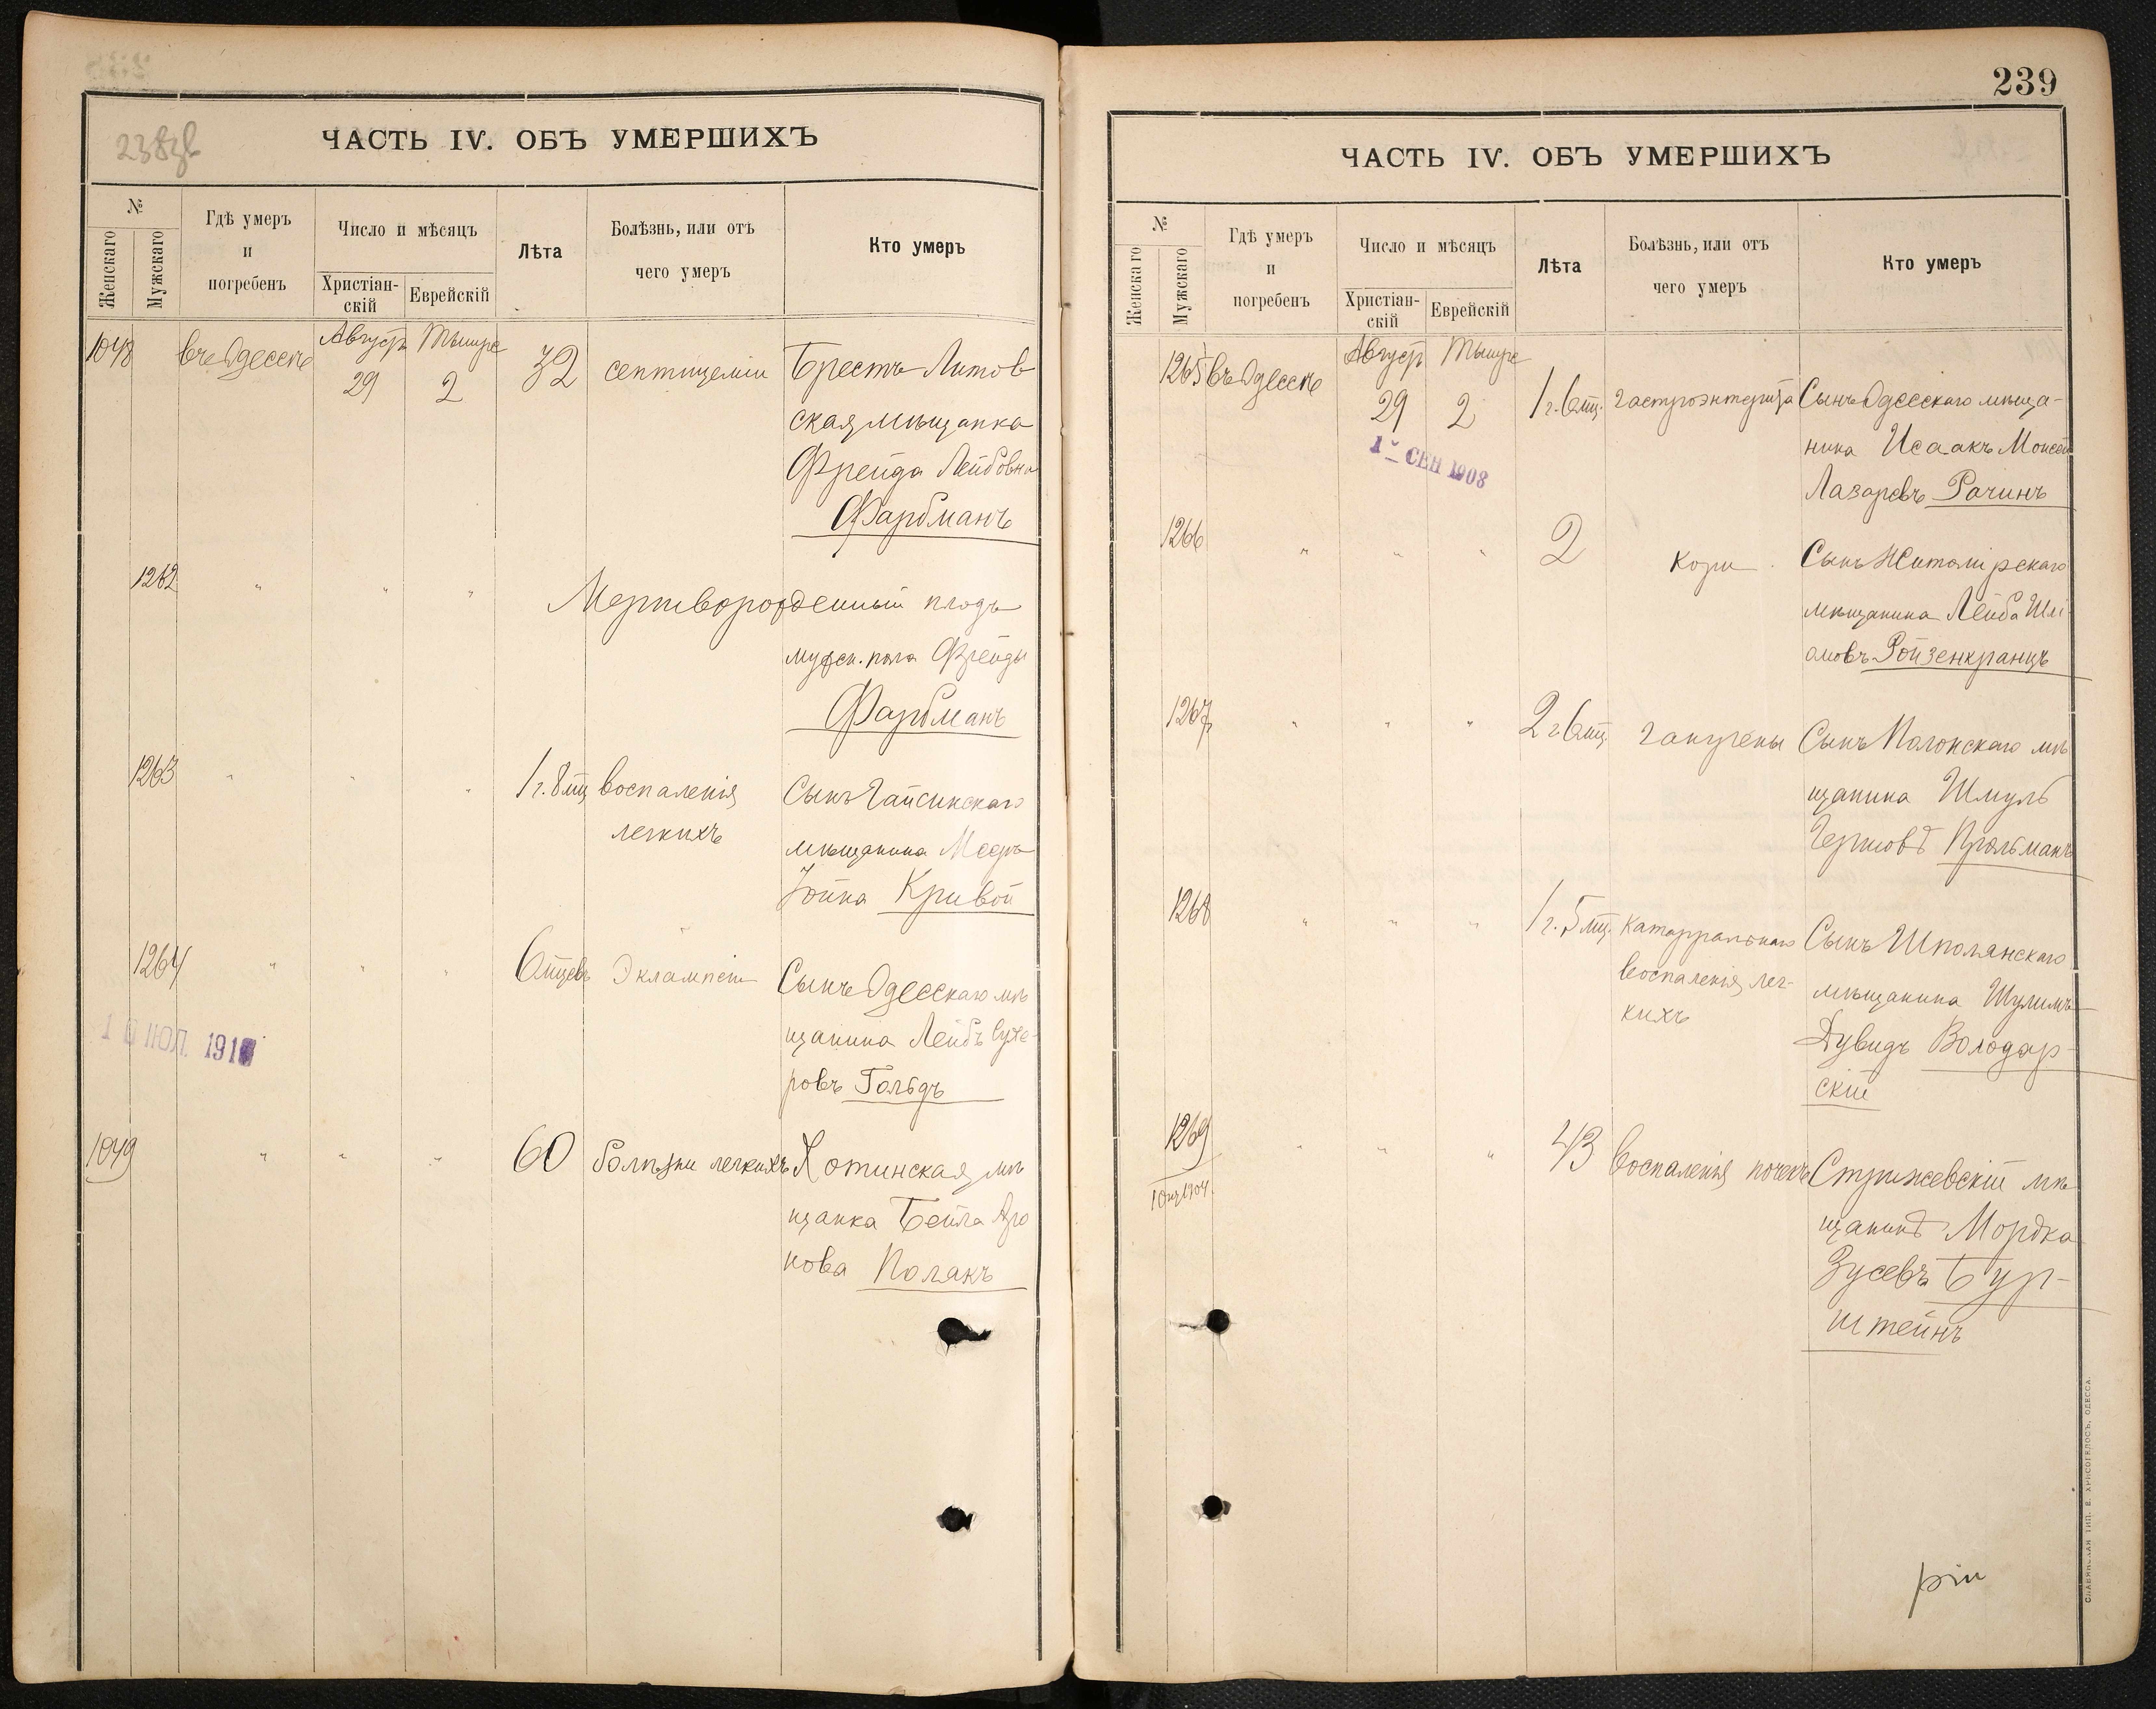 238зв
ЧАСТЬ IV. ОБЪ УМЕРШИХЪ
№
Женскаго
Мужскаго
Гдѣ умеръ
и
погребенъ
Число и мѣсяцъ
Христіан-
скій
Еврейскій
Лѣта
Болѣзнь, или отъ
чего умеръ
Кто умеръ
1048 въ Одессѣ Август 29 Тишре 2 32 септицеміи Брестъ Литов
ская мѣщанка
Фрейда Лейбовна
Фарбманъ
1262 " " " Мертворожденный плодъ
мужск. пола Фрейды
Фарбманъ
1263 " " " 1 г. 8 мц воспаленія Сынъ Гайсинскаго
легкихъ мѣщанина Мееръ
Іойна Кривой
1264 " " " 6 мцевъ Эклампсіи Сынъ Одесскаго мѣ
щанина Лейбъ Сухе-
ровъ Гольдъ
1049 " " " 60 болѣзни легкихъ Хотинская мѣ
щанка Бейла Аро
нова Полякъ
239
ЧАСТЬ IV. ОБЪ УМЕРШИХЪ
№
Женскаго
Мужскаго
Гдѣ умеръ
и
погребенъ
Число и мѣсяцъ
Христіан-
скій
Еврейскій
Лѣта
Болѣзнь, или отъ
чего умеръ
Кто умеръ
1265 въ Одессѣ Август 29 Тишре 2 1 г. 6 мц. гастроэнтерита Сынъ Одесскаго мѣща-
нина Исаакъ Моисей
Лазаревъ Рачинъ
1 СЕН 1908
1266 " " " 2 Кори Сынъ Житомірскаго
мѣщанина Лейба Шлі
омовъ Ройзенкранцъ
1267 " " " 2 г 6 мц. гангрены Сынъ Полонскаго мѣ
щанина Шмуль
Гершовъ Прольманъ
1268 " " " 1 г. 5 мц. Катарральнаго Сынъ Шполянскаго
воспаленія лег- мѣщанина Шулимъ
кихъ Дувидъ Володар-
скій
1269 " " " 43 воспаленія почекъ Стрижевскій мѣ
щанинъ Мордка
Зусевъ Бур-
штейнъ
СЛАВЯНСКАЯ ТИП. Е. ХРИСОГЕЛОСЪ, ОДЕССА.